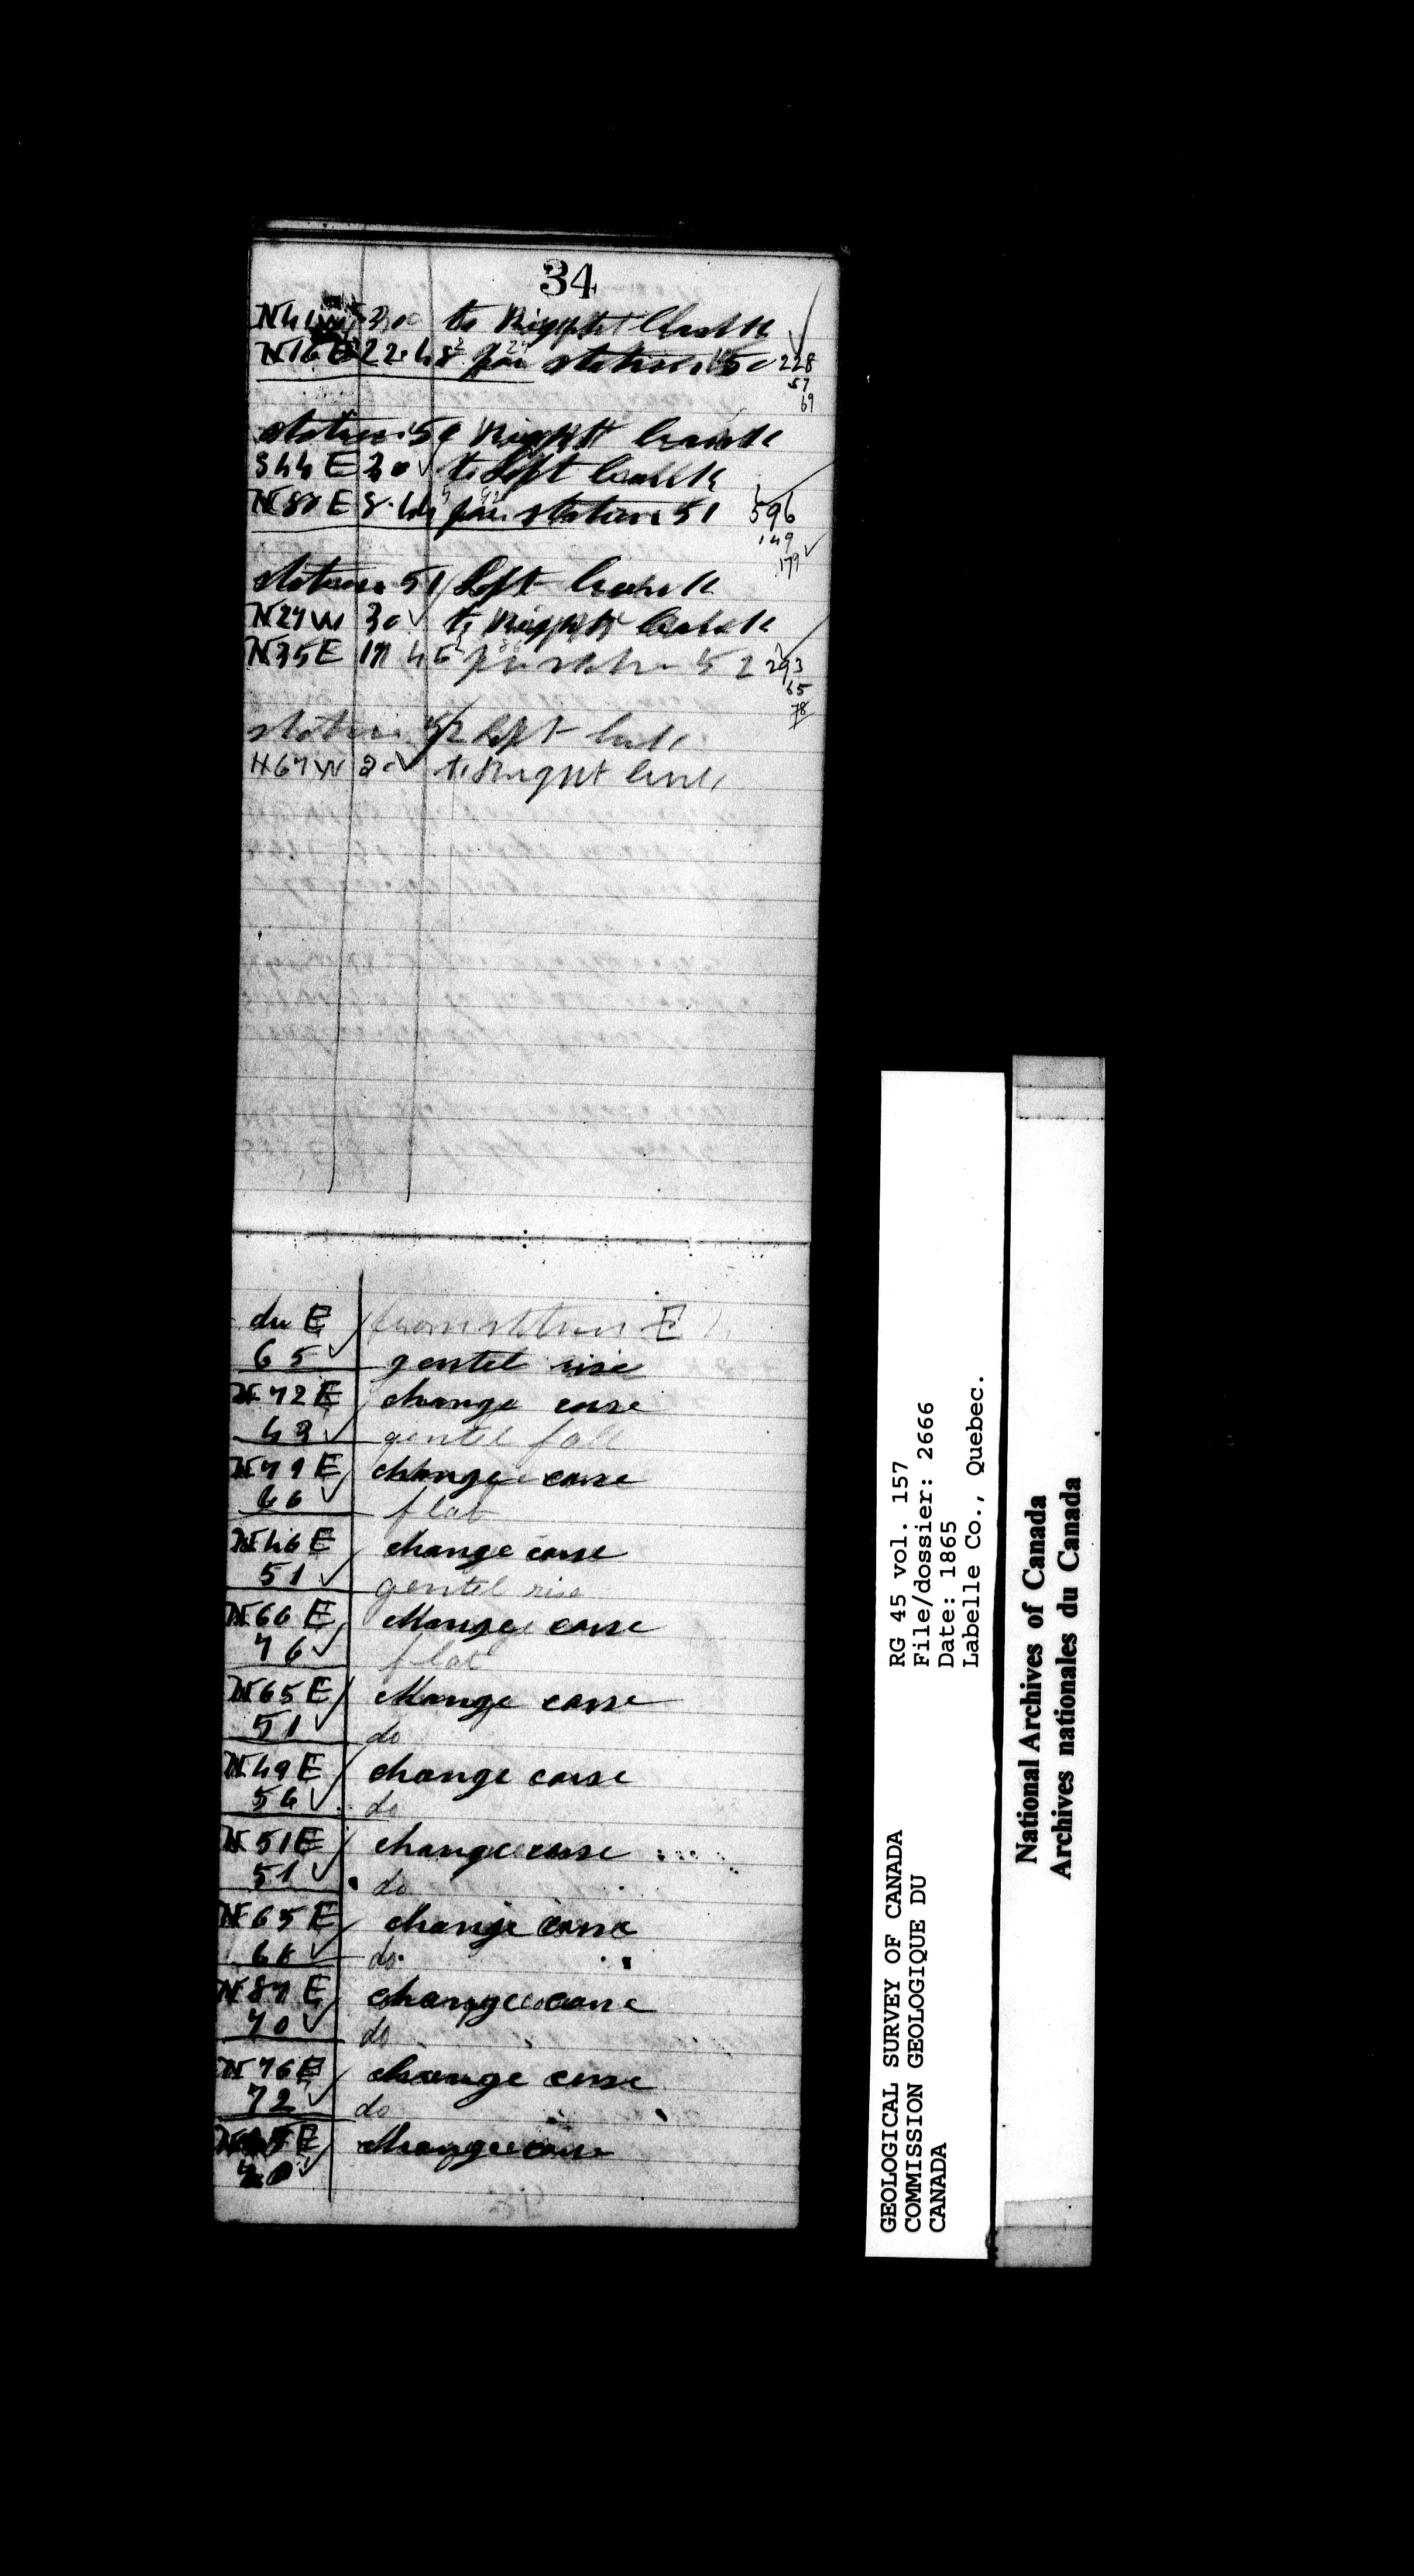 34
N41W 30 to Right bank
N16E 22.48 for station 50 228
57
69
station 50 Right bank
S44E 30 to Left bank
N87E 8.44 for station 51 596
149
179
station 51 Left bank
N27W 30 to Right bank
N35E 17 45 for station 52 293
65
78
station 52 Left bank
N67W 30 to Right bank
du E from station E
65 gentel rise
N72E change corse
43 gentel fall
N79E change corse
66 flat
N46E change corse
51 gentel rise
N66E change corse
76 flat
N65E change corse
51 do
N49E change corse
56 do
N51E change corse
51 do
N65E change corse
68 do
N87E change corse
70 do
N76E change corse
72 do
E change corse
RG 45 vol. 157
File/dossier: 2666
Date: 1865
Labelle Co., Quebec.
GEOLOGICAL SURVEY OF CANADA
COMMISSION GEOLOGIQUE DU
CANADA
National Archives of Canada
Archives nationales du Canada